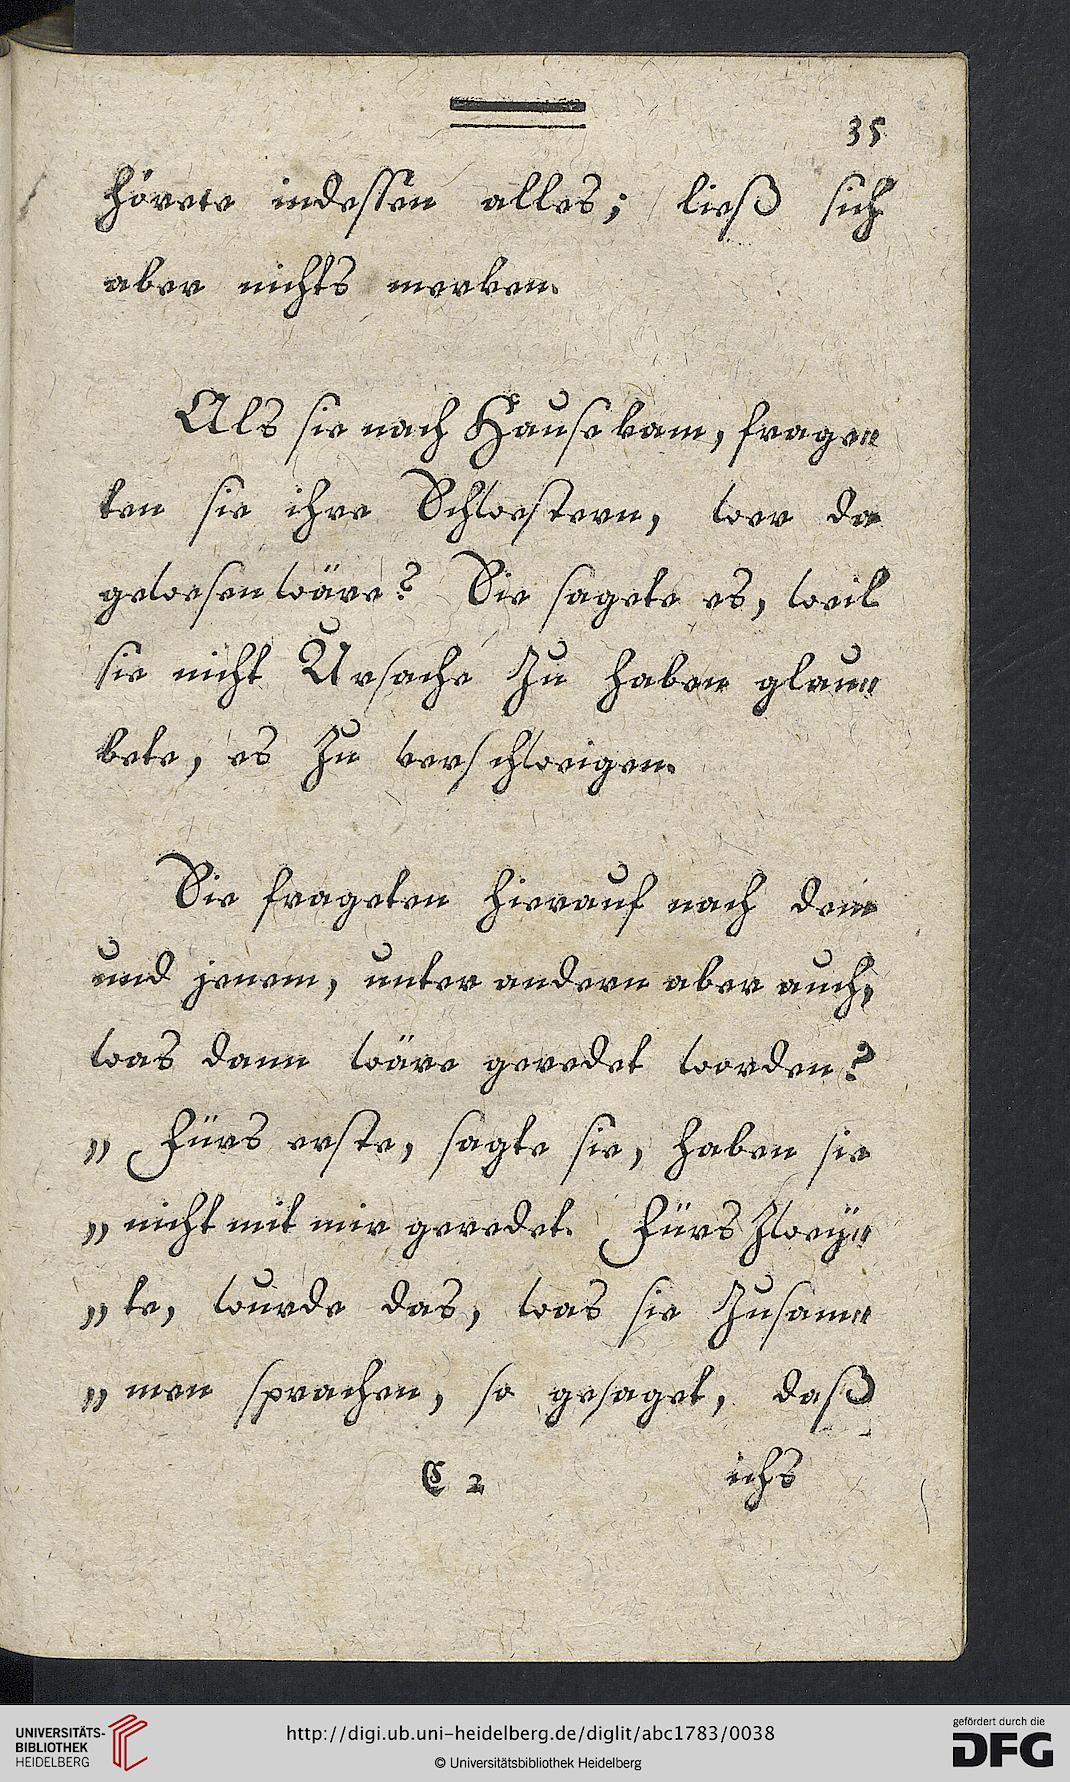 35
hörete indessen alles; ließ sich
aber nichts merken.
Als sie nach Hause kam, frage„
ten sie ihre Schwestern, wer da
gewesen wäre? Sie sagete es, weil
sie nicht Ursache zu haben glau„
bete, es zu verschweigen.
Sie frageten hierauf nach dem
und jenem, unter andern aber auch,
was dann wäre geredet worden?
„ Fürs erste, sagte sie, haben sie
„ nicht mit mir geredet. Fürs zwey„
„ te, wurde das, was sie zusam„
„ men sprachen, so gesaget, daß
C 2 ichs
UNIVERSITÄTS-
BIBLIOTHEK
HEIDELBERG
http://digi.ub.uni-heidelberg.de/diglit/abc1783/0038
© Universitätsbibliothek Heidelberg
gefördert durch die
DFG